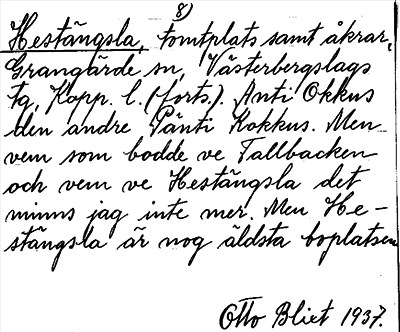 8)
Hestängsla, Tomtplats samt åkrar,
Grangärde sn, Västerbergslags
fg, Kopp. l. (forts.). Anti Okkus
den andre Pänti Kokkus. Men
vem som bodde ve Tallbacken
och vem ve Hestängsla det
minns jag inte mer. Men He-
stängsla är nog äldsta boplatsen
Otto Blixt 1937.